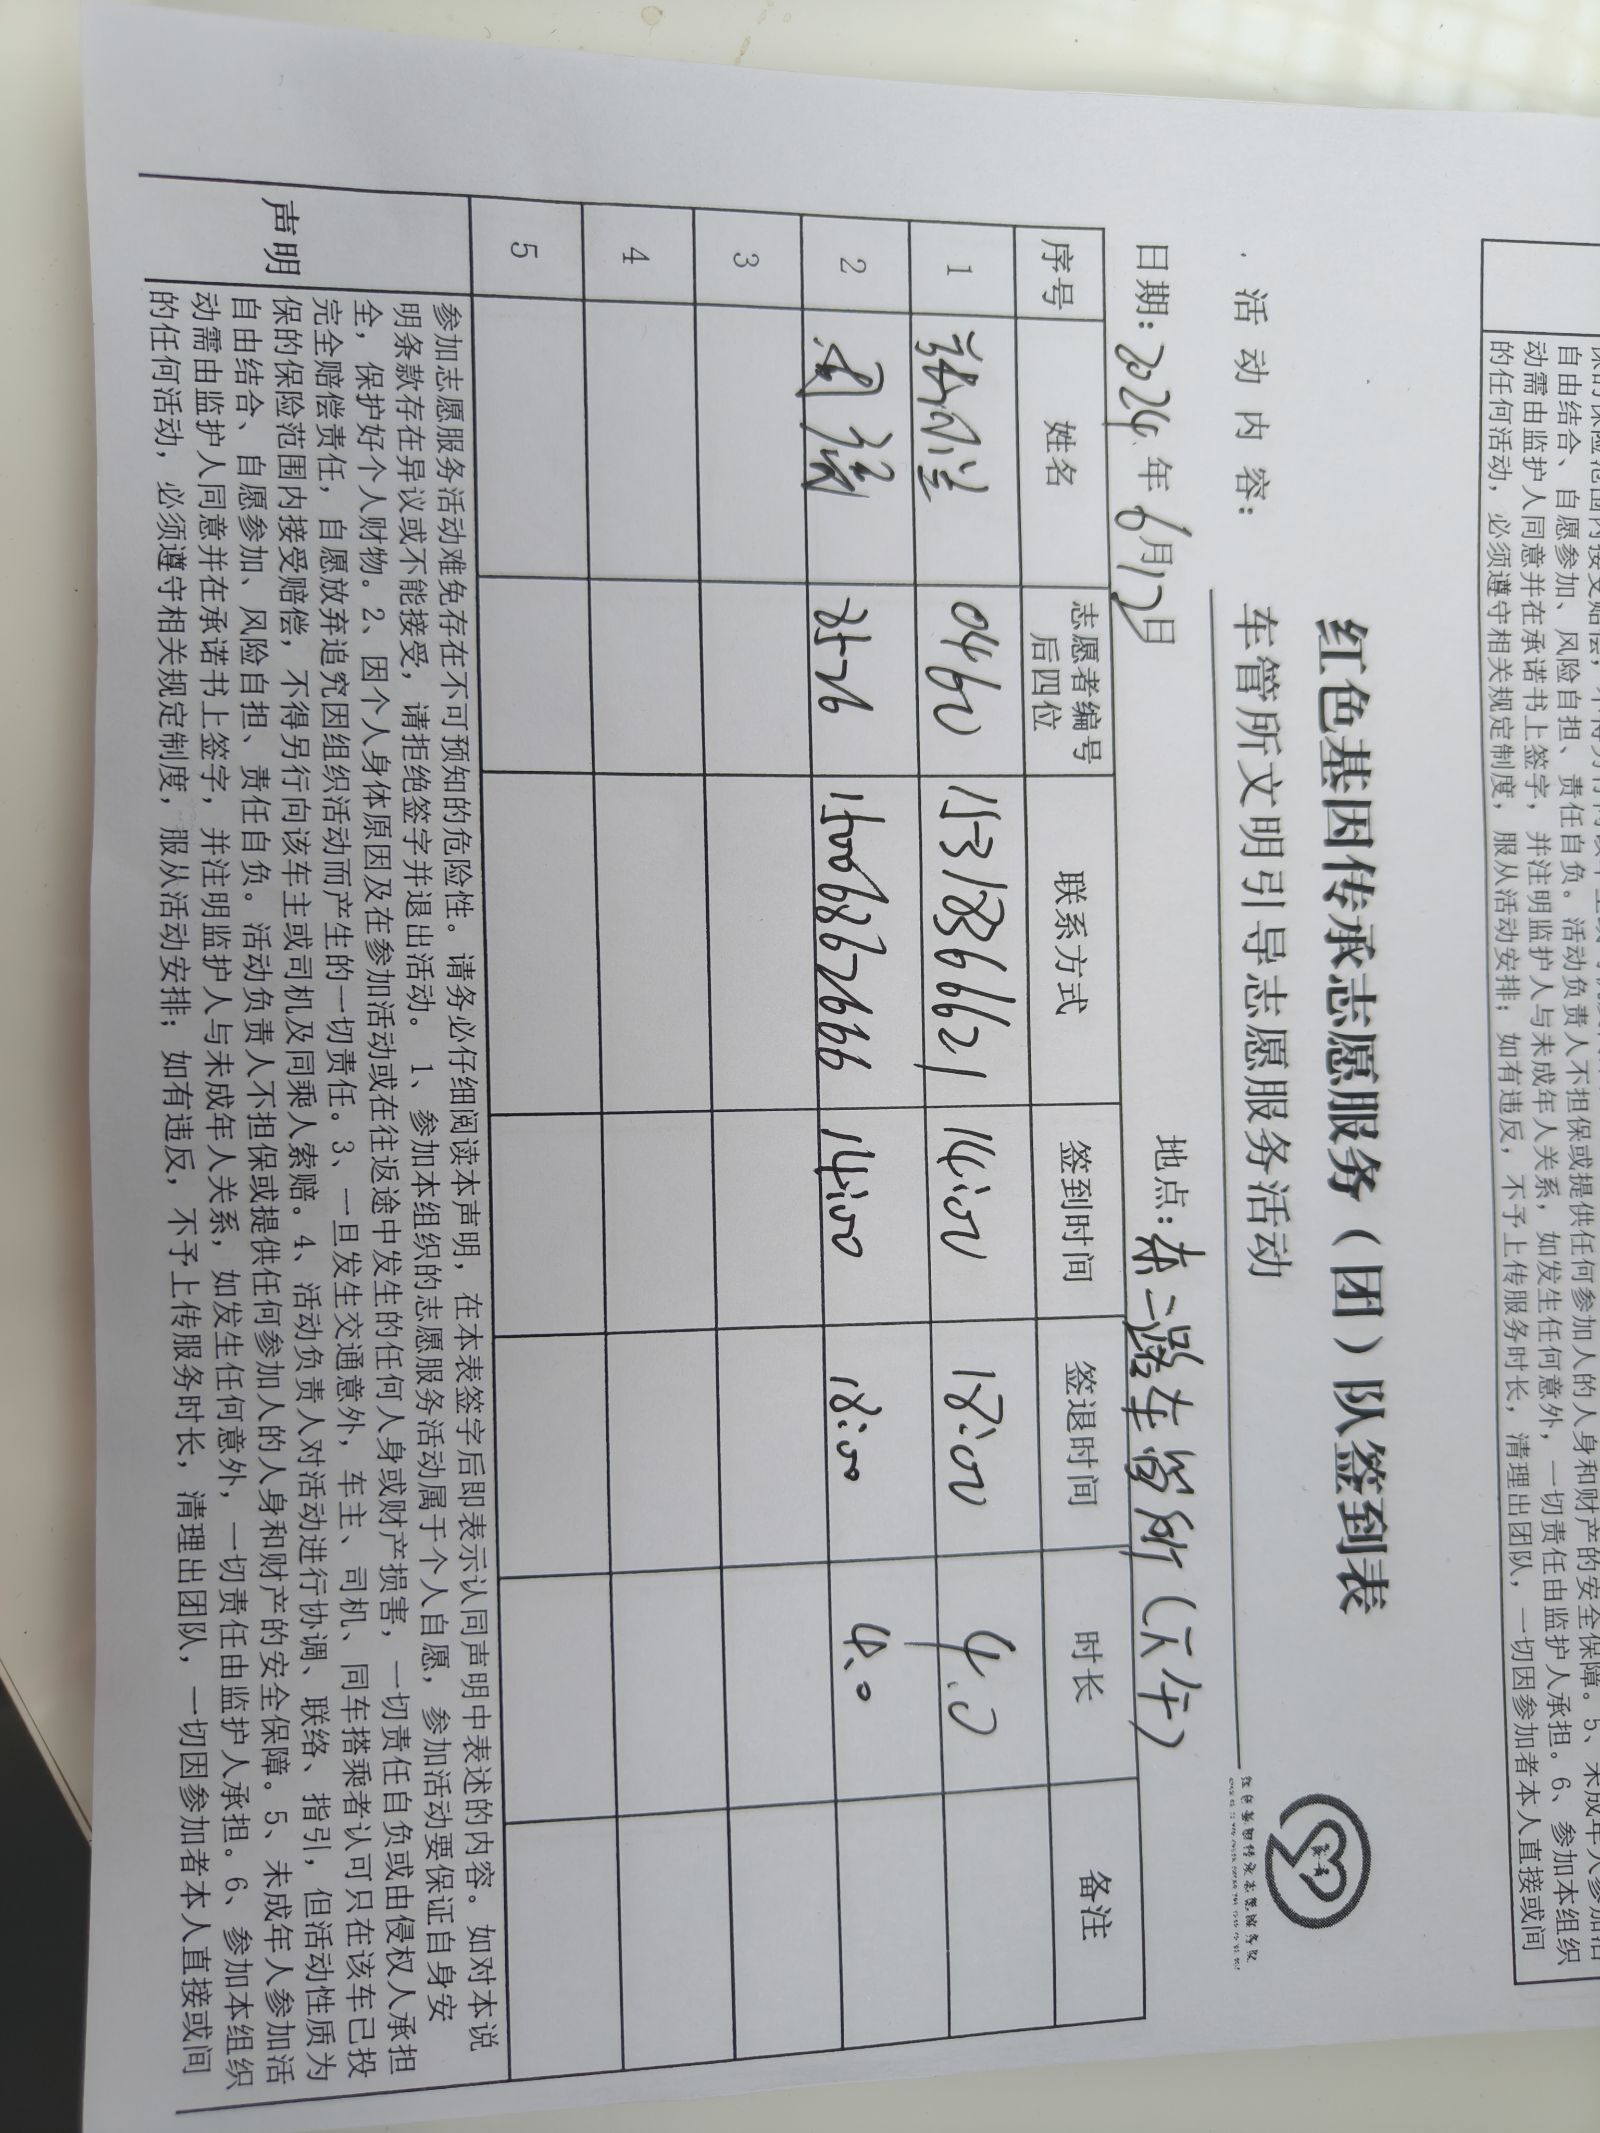 红色基因传承志愿服务（团）队签到表
活动内容： 车管所文明引导志愿服务活动
日期：2024年6月12日 地点：东二路车管所（下午）
序号 姓名 志愿者编号后四位 联系方式 签到时间 签退时间 时长 备注
1 0460 15318366621 14:00 18:00 4.0
2 周 3576 15006867666 14:00 18:00 4.0
3
4
5
声明
参加志愿服务活动难免存在不可预知的危险性。请务必仔细阅读本声明，在本表签字后即表示认同声明中表述的内容。如对本说
明条款存在异议或不能接受，请拒绝签字并退出活动。1、参加本组织的志愿服务活动属于个人自愿，参加活动要保证自身安
全，保护好个人财物。2、因个人身体原因及在参加活动或在往返途中发生的任何人身或财产损害，一切责任自负或由侵权人承担
完全赔偿责任，自愿放弃追究因组织活动而产生的一切责任。3、一旦发生交通意外，车主、司机、同车搭乘者认可只在该车已投
保的保险范围内接受赔偿，不得另行向该车主或司机及同乘人索赔。4、活动负责人对活动进行协调、联络、指引，但活动性质为
自由结合、自愿参加、风险自担、责任自负。活动负责人不担保或提供任何参加人的人身和财产的安全保障。5、未成年人参加活
动需由监护人同意并在承诺书上签字，并注明监护人与未成年人关系，如发生任何意外，一切责任由监护人承担。6、参加本组织
的任何活动，必须遵守相关规定制度，服从活动安排；如有违反，不予上传服务时长，清理出团队，一切因参加者本人直接或间
自由结合、自愿参加、风险自担、责任自负。活动负责人不担保或提供任何参加人的人身和财产的安全保障。5、未成年人参加活
动需由监护人同意并在承诺书上签字，并注明监护人与未成年人关系，如发生任何意外，一切责任由监护人承担。6、参加本组织
的任何活动，必须遵守相关规定制度，服从活动安排；如有违反，不予上传服务时长，清理出团队，一切因参加者本人直接或间